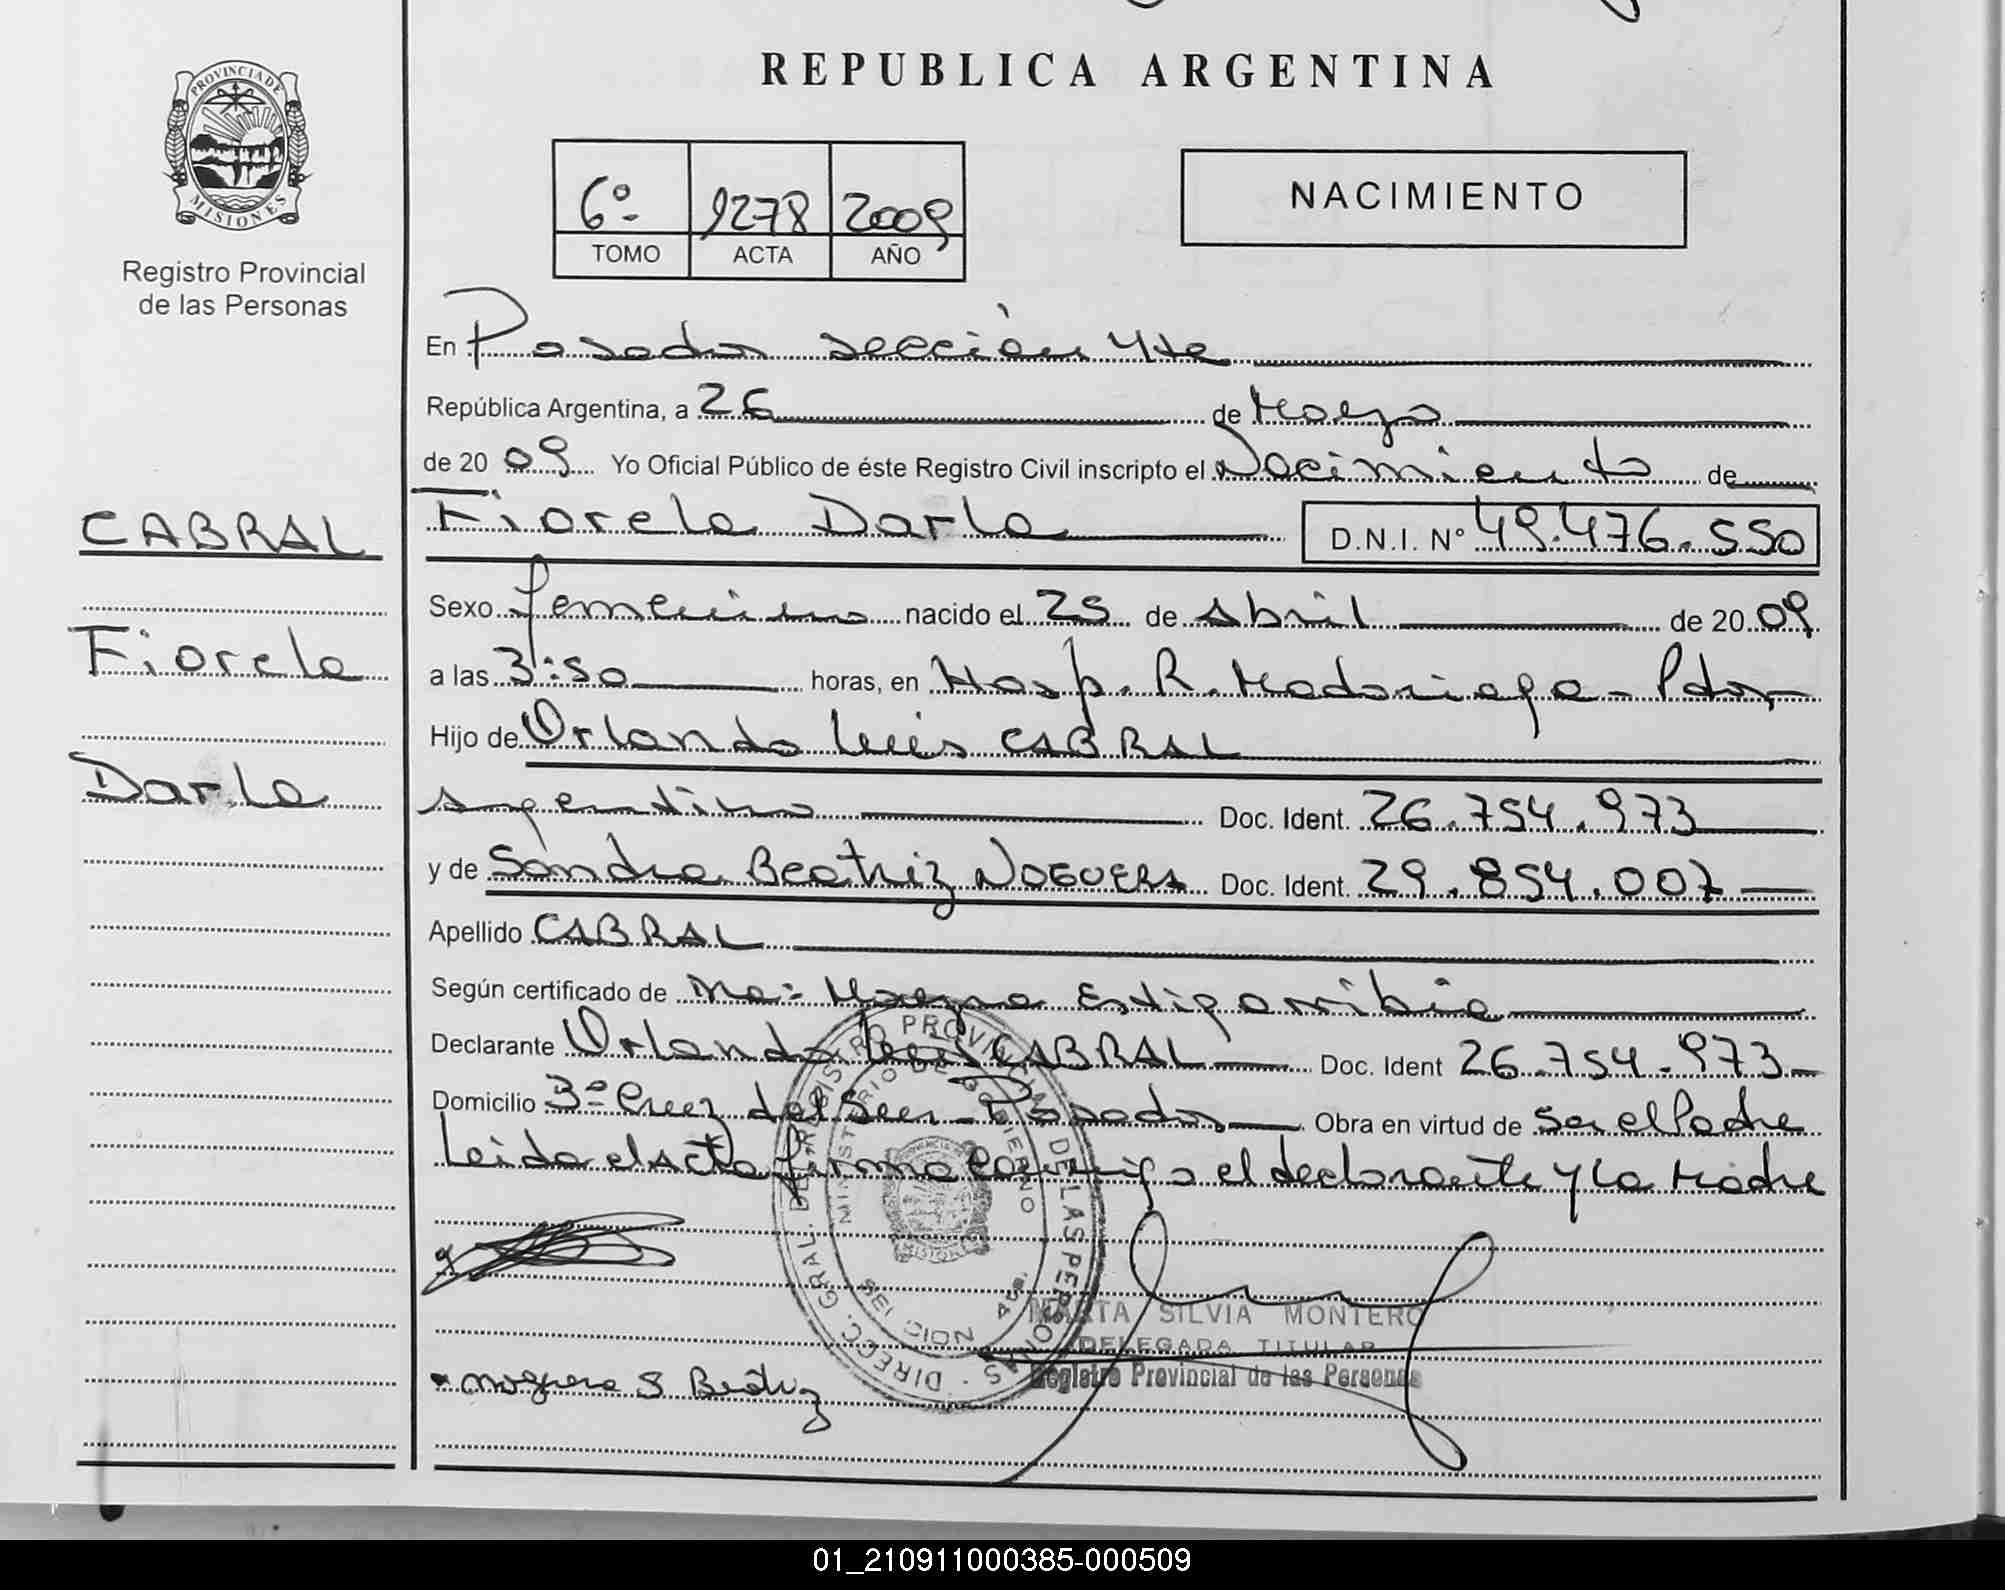 REPUBLICA ARGENTINA
PROVINCIA DE
MISIONES
Registro Provincial
de las Personas
6º
1278
2009
TOMO
ACTA
AÑO
NACIMIENTO
En Posadas sección 4ta
República Argentina, a 26 de Marzo
de 20 09 Yo Oficial Público de éste Registro Civil inscripto el Nacimiento de
Fiorela Darla D.N.I. Nº 49.476.550
CABRAL
Fiorela
Darla
Sexo femenino nacido el 25 de Abril de 20 09
a las 3:50 horas, en Hosp. R. Madariaga - Pdas
Hijo de Orlando Luis CABRAL
argentino Doc. Ident. 26.754.973
y de Sandra Beatriz NOGUERA Doc. Ident. 29.854.007
Apellido CABRAL
Según certificado de Estigarribia
Declarante Orlando Luis CABRAL Doc. Ident 26.754.973
Domicilio 3º Cruz del Sur - Posadas Obra en virtud de ser el Padre
Leida el Acta firma conmigo el declarante y la Madre
DIRECC. GRAL. DEL REGISTRO PROVINCIAL DE LAS PERSONAS
MINISTERIO DE GOBIERNO
MISIONES
MARTA SILVIA MONTERO
DELEGADA TITULAR
Registro Provincial de las Personas
Noguera S Beatriz
01_210911000385-000509